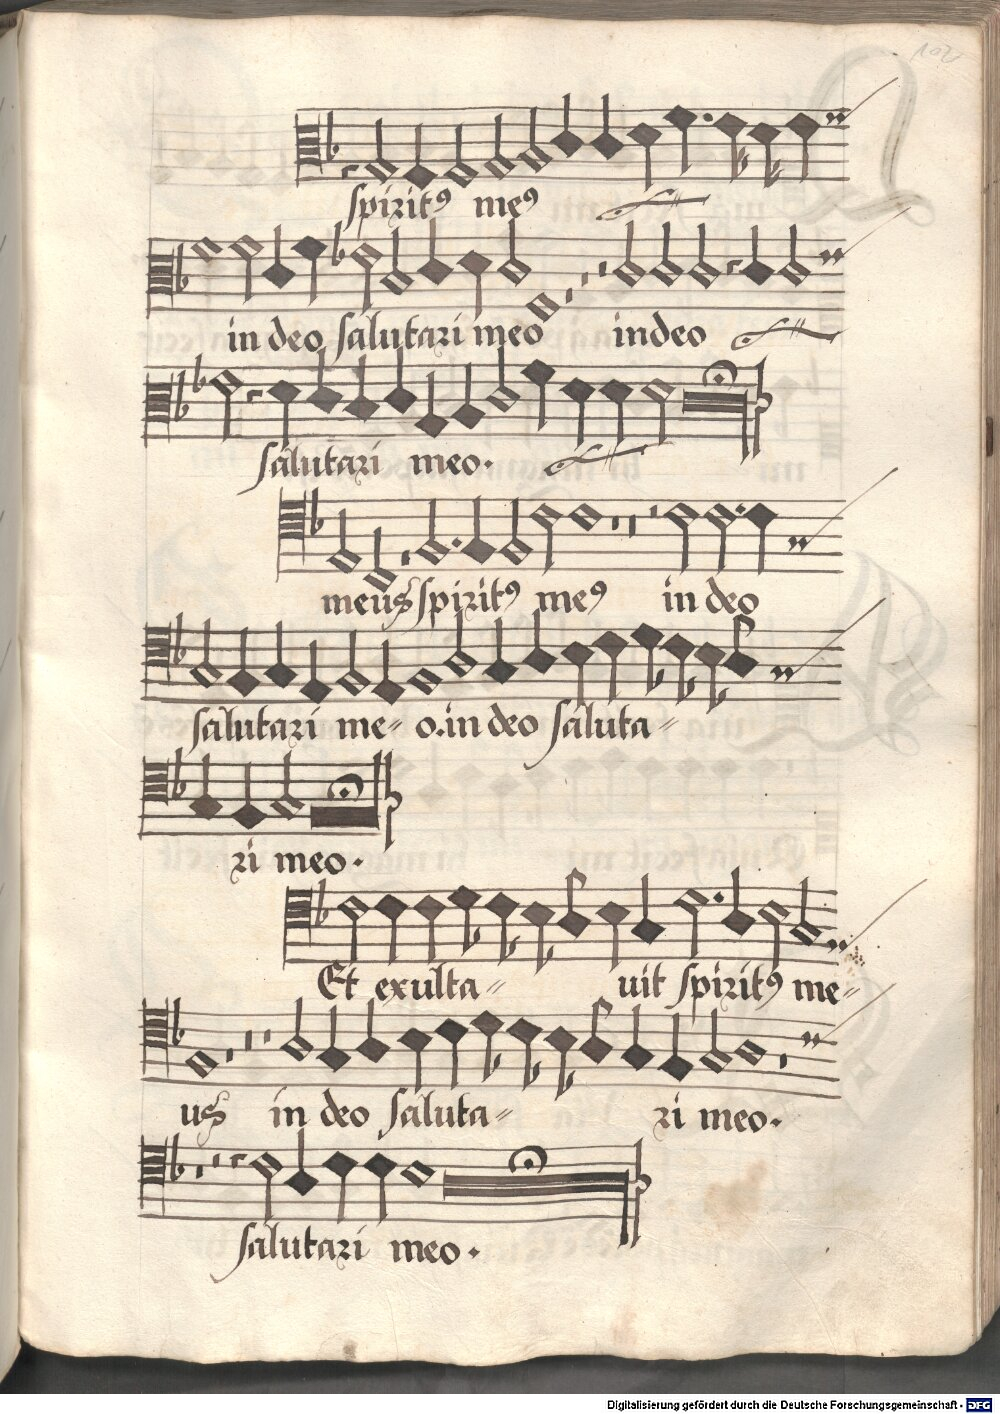 102
spiritꝰ meꝰ
in deo salutari meo indeo
salutari meo.
meus spiritꝰ meꝰ in deo
salutari me= o. in deo saluta=
ri meo.
Et exulta= uit spiritꝰ me=
us in deo saluta= ri meo.
salutari meo.
Digitalisierung gefördert durch die Deutsche Forschungsgemeinschaft - DFG